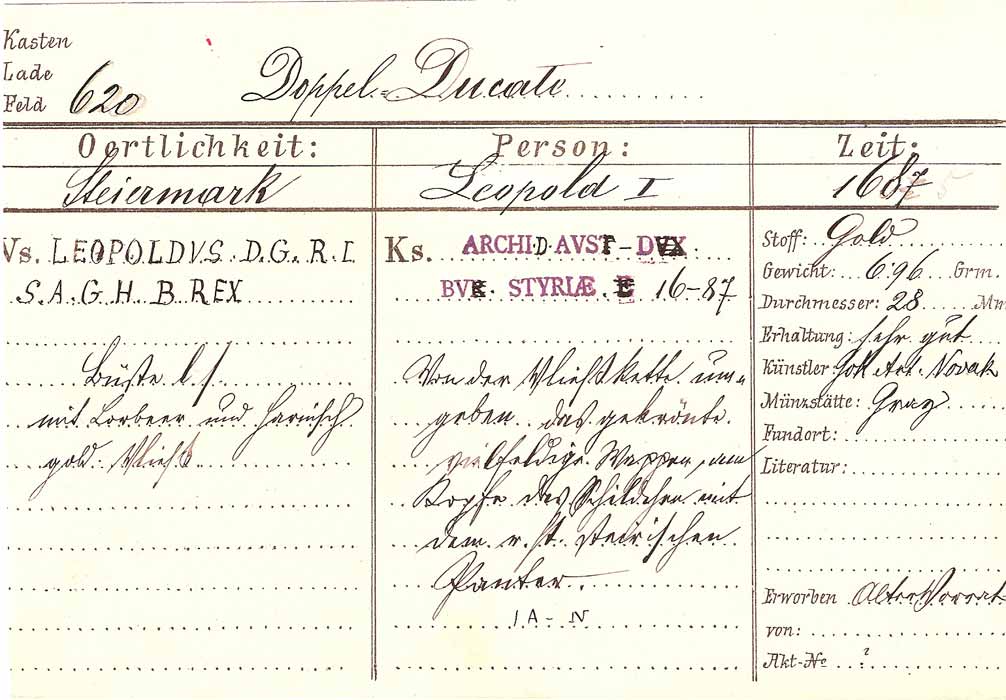 Kasten
Lade
Feld 620
Doppel=Ducate
Oertlichkeit:
Person:
Zeit:
Steiermark
Leopold I
1687
Vs. LEOPOLDVS. D. G. R. I
S. A. G. H. B. REX
Büste l /
mit Lorbeer und Harnisch
gold. Vließ
Ks. ARCHI. D. AVST - DVX
BVR. STYRIÆ. E 16-87
Von der Vließkette um-
geben das gekrönte
vielfeldige Wappen, am
Kopfe das Schildchen mit
dem steirischen
Panter.
IA - N
Stoff: Gold
Gewicht: 6.96 Grm.
Durchmesser: 28 Mm
Erhaltung: sehr gut
Künstler Novak
Münzstätte: Graz
Fundort:
Literatur:
Erworben Alter Vorrat
von:
Akt-No ?